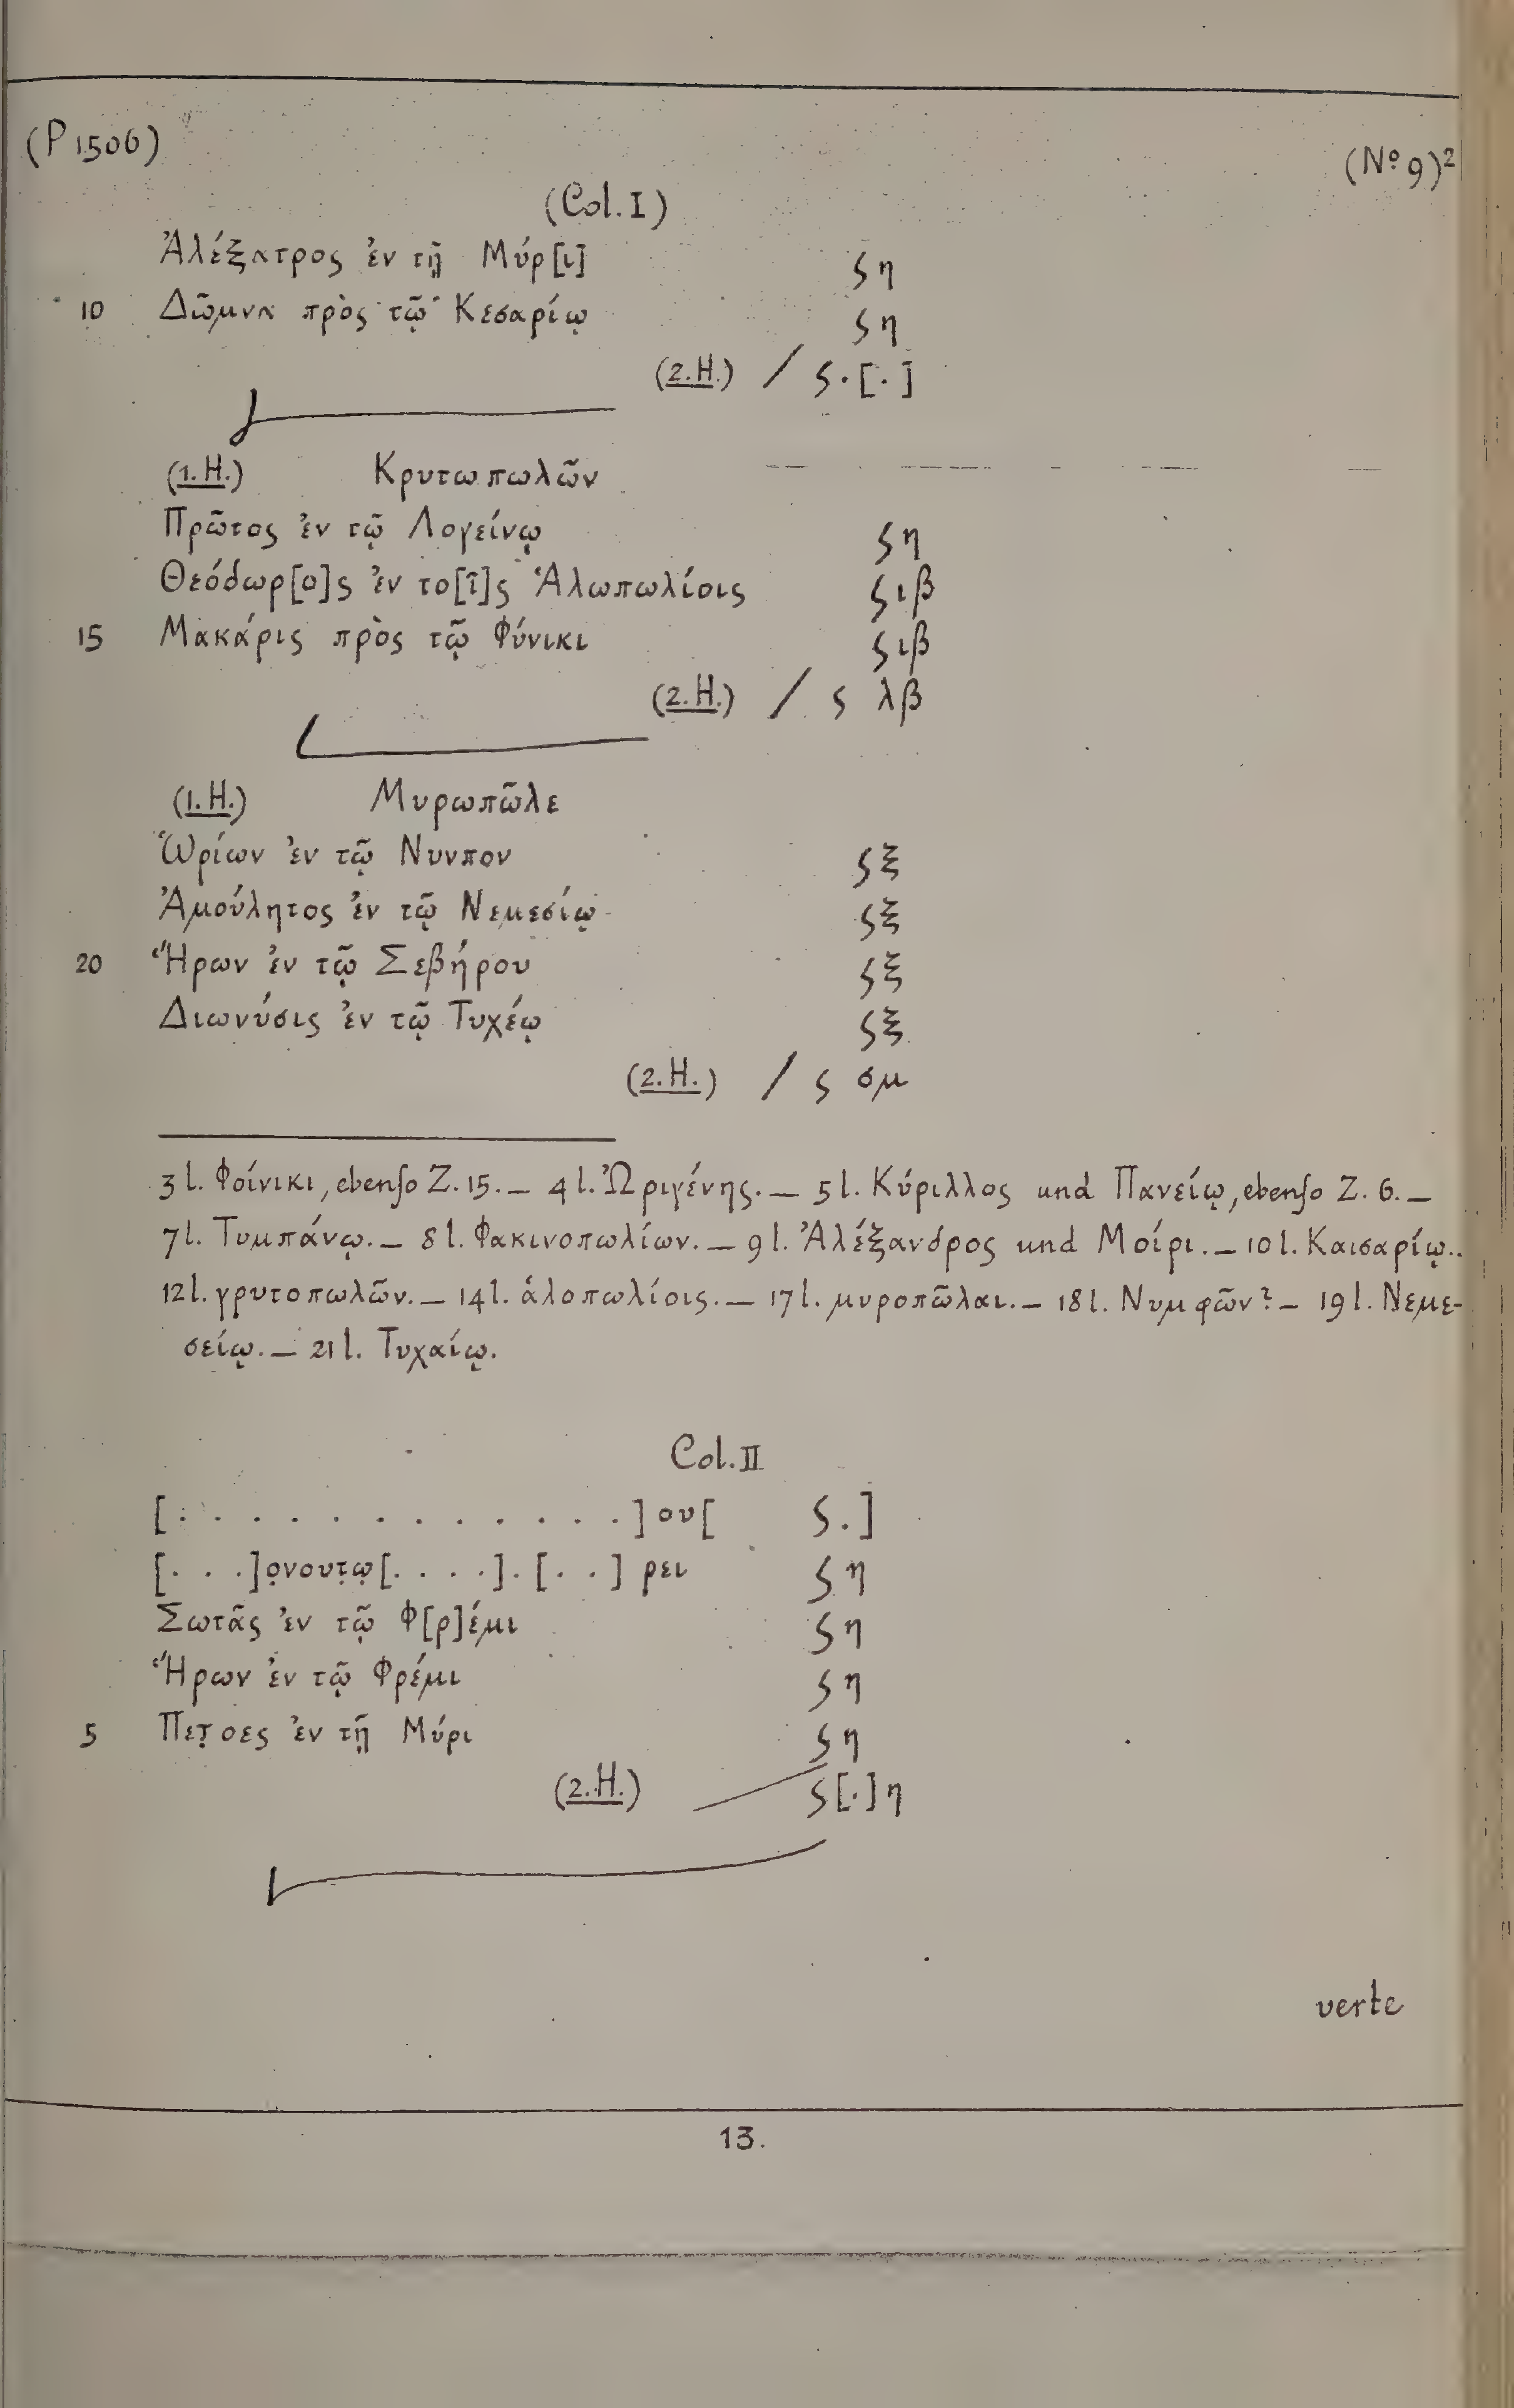 (P 1506)
(Nº 9)²
(Col. I)
Ἀλέξατρος ἐν τῇ Μύρ[ι] ϛ η
10 Δῶμνα πρὸς τῷ Κεσαρίῳ ϛ η
(2.H.) / ϛ .[.]
(1.H.) Κρυτωπωλῶν
Πρῶτος ἐν τῷ Λογείνῳ ϛ η
Θεόδωρ[ο]ς ἐν το[ῖ]ς Ἁλωπωλίοις ϛ ιβ
15 Μακάρις πρὸς τῷ Φύνικι ϛ ιβ
(2.H.) / ϛ λβ
(1.H.) Μυρωπῶλε
Ὡρίων ἐν τῷ Νυνπον ϛ ξ
Ἀμούλητος ἐν τῷ Νεμεσίῳ ϛ ξ
20 Ἥρων ἐν τῷ Σεβήρου ϛ ξ
Διωνύσις ἐν τῷ Τυχέῳ ϛ ξ
(2.H.) / ϛ σμ
3 l. Φοίνικι, ebenso Z. 15. — 4 l. Ὠριγένης. — 5 l. Κύριλλος und Πανείῳ, ebenso Z. 6. —
7 l. Τυμπάνῳ. — 8 l. Φακινοπωλίων. — 9 l. Ἀλέξανδρος und Μοίρι. — 10 l. Καισαρίῳ..
12 l. γρυτοπωλῶν. — 14 l. ἁλοπωλίοις. — 17 l. μυροπῶλαι. — 18 l. Νυμφῶν? — 19 l. Νεμε-
σείῳ. — 21 l. Τυχαίῳ.
Col. II
[. . . . . . . . . . . .] ου[ ϛ .]
[. . .]ο̣νουτ̣ῳ̣[. . . .] . [. .] ρει ϛ η
Σωτᾶς ἐν τῷ Φ[ρ]έμι ϛ η
Ἥρων ἐν τῷ Φρέμι ϛ η
5 Πετ̣οες ἐν τῇ Μύρι ϛ η
(2.H.) / ϛ [.] η
verte
13.